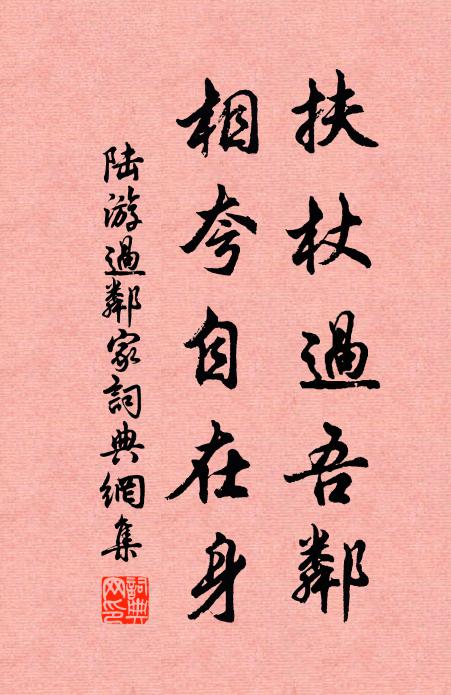 扶杖過吾鄰
相夸自在身
陆游過鄰家詞典網集
詞典
网印